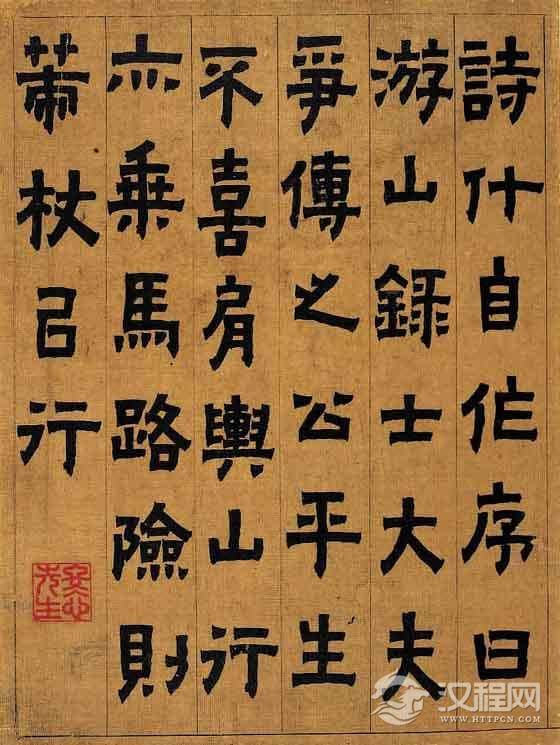 詩什自作序曰
游山錄士大夫
爭傳之公平生
不喜肩輿山行
亦乘馬路險則
策杖㠯行
冬心先生
汉程网
WWW.HTTPCN.COM